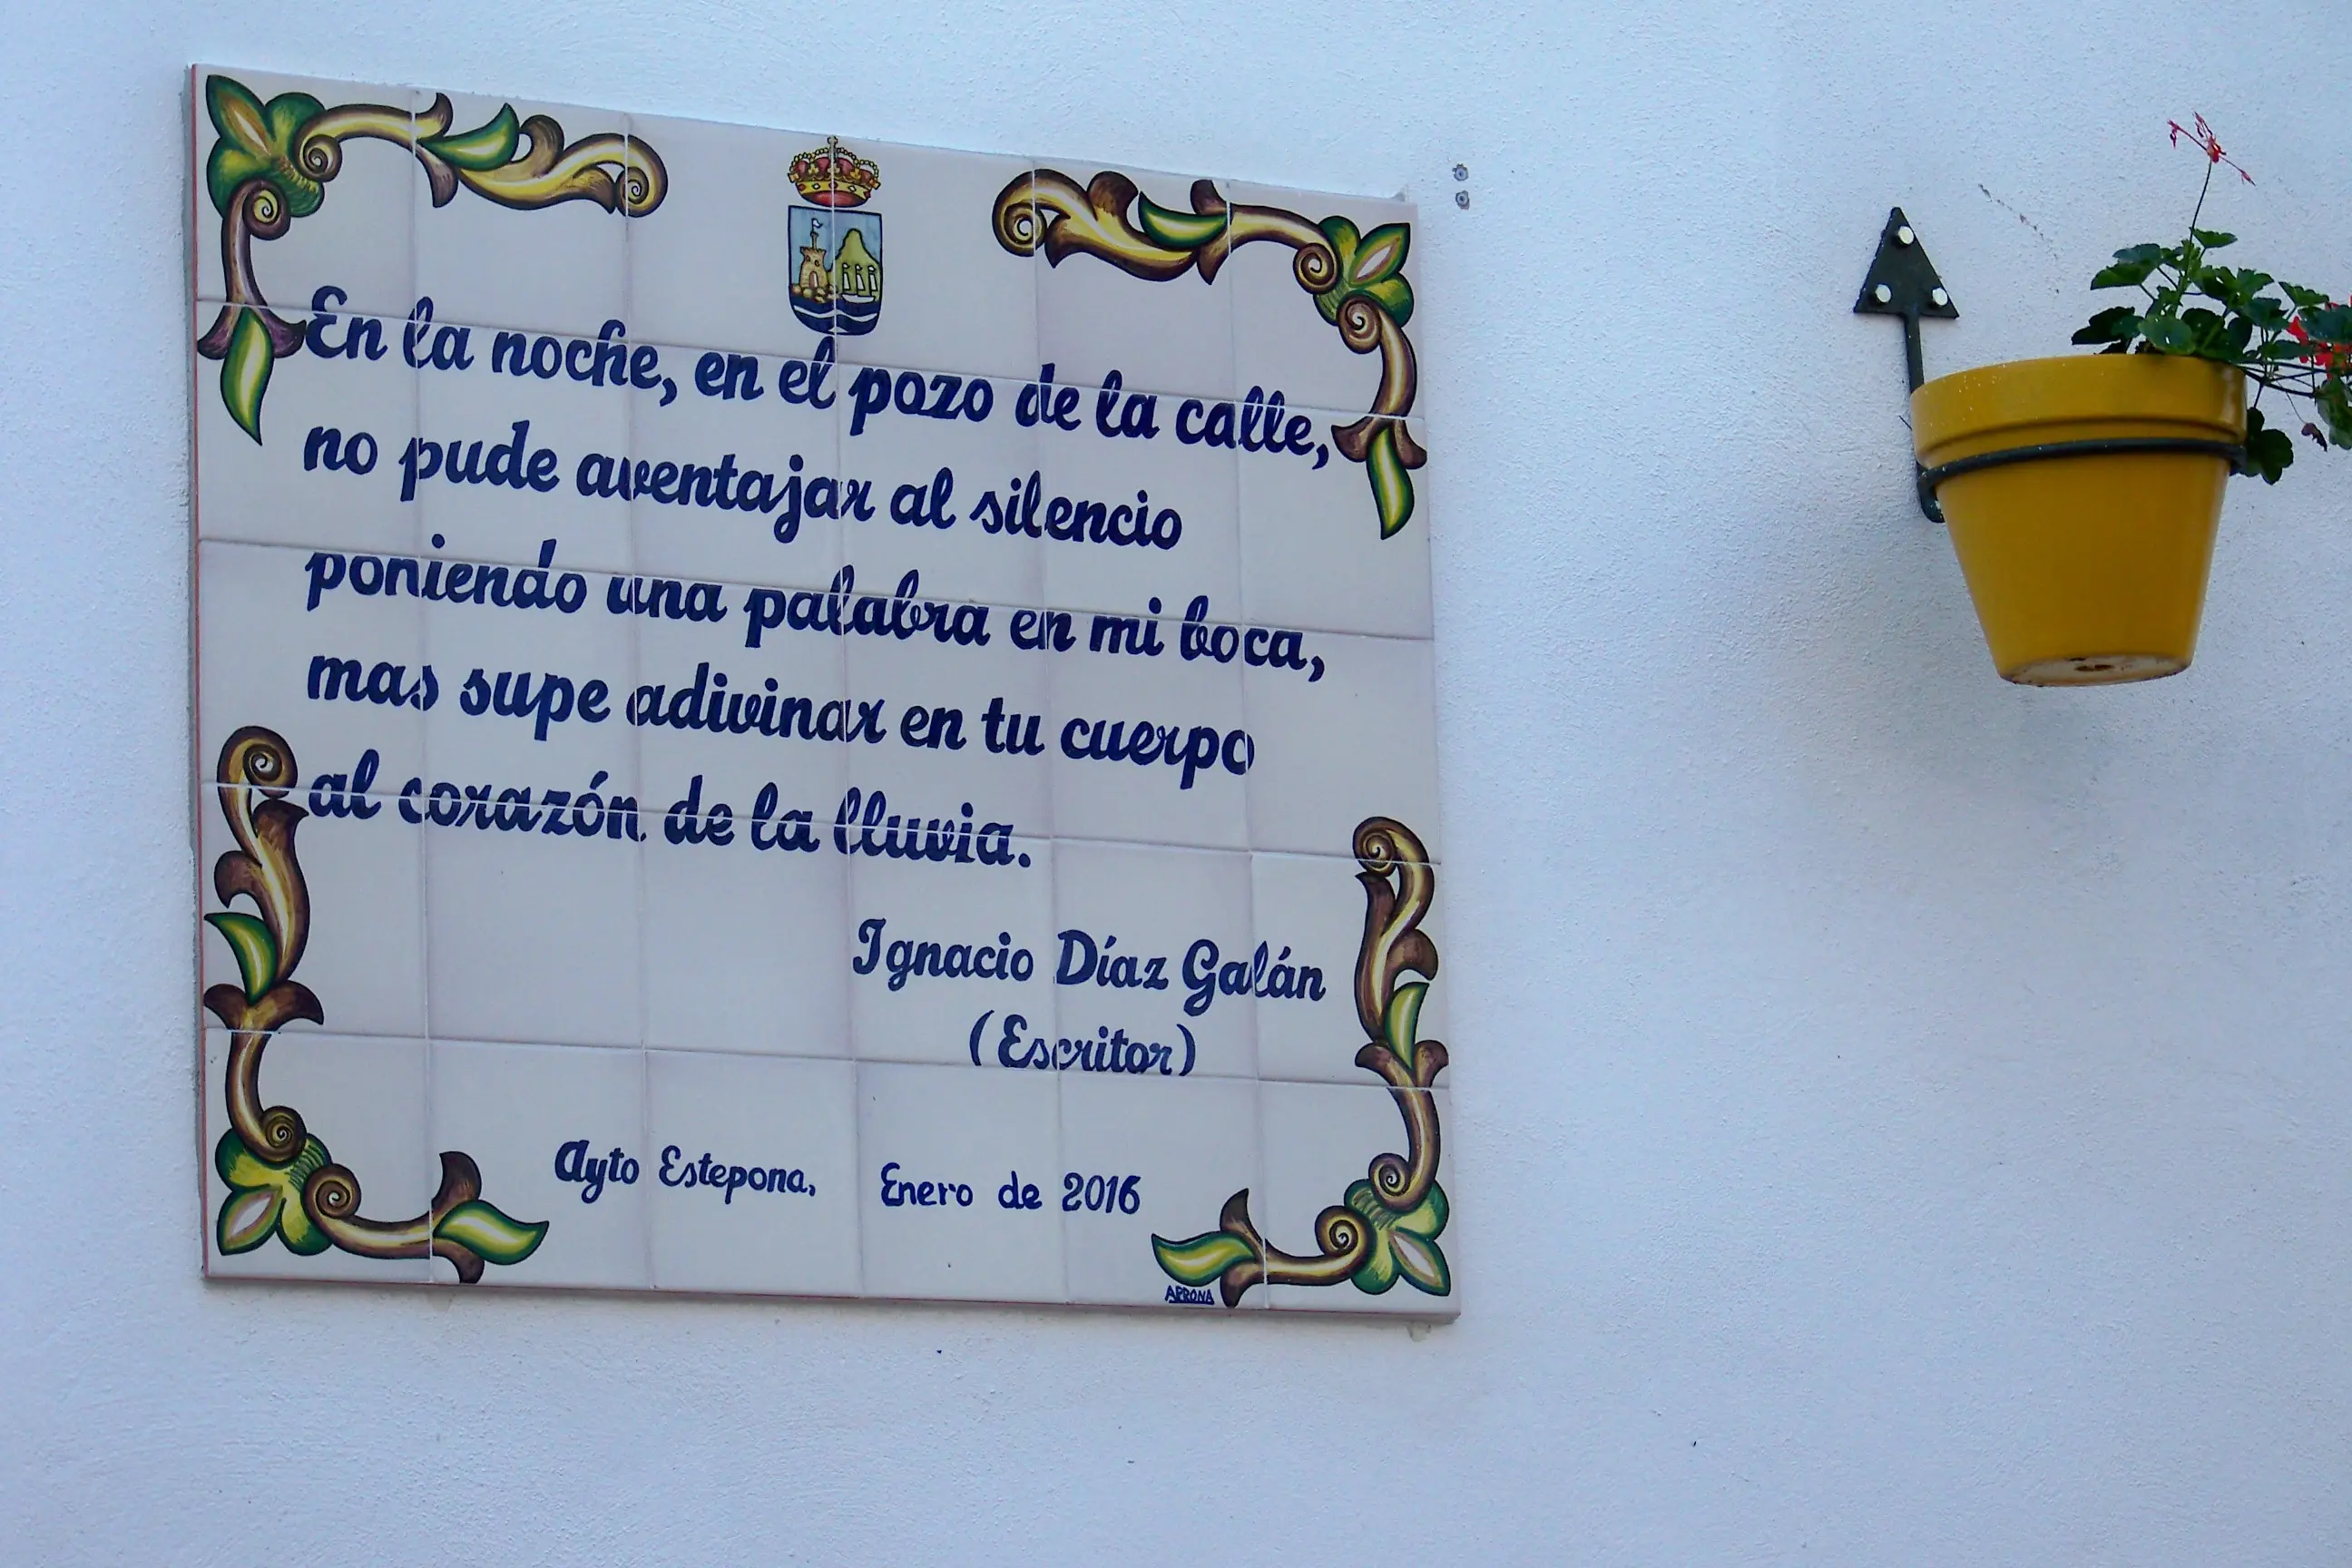 En la noche, en el pozo de la calle,
no pude aventajar al silencio
poniendo una palabra en mi boca,
mas supe adivinar en tu cuerpo
al corazón de la lluvia.
Ignacio Díaz Galán
(Escritor)
Ayto Estepona, Enero de 2016
APRONA